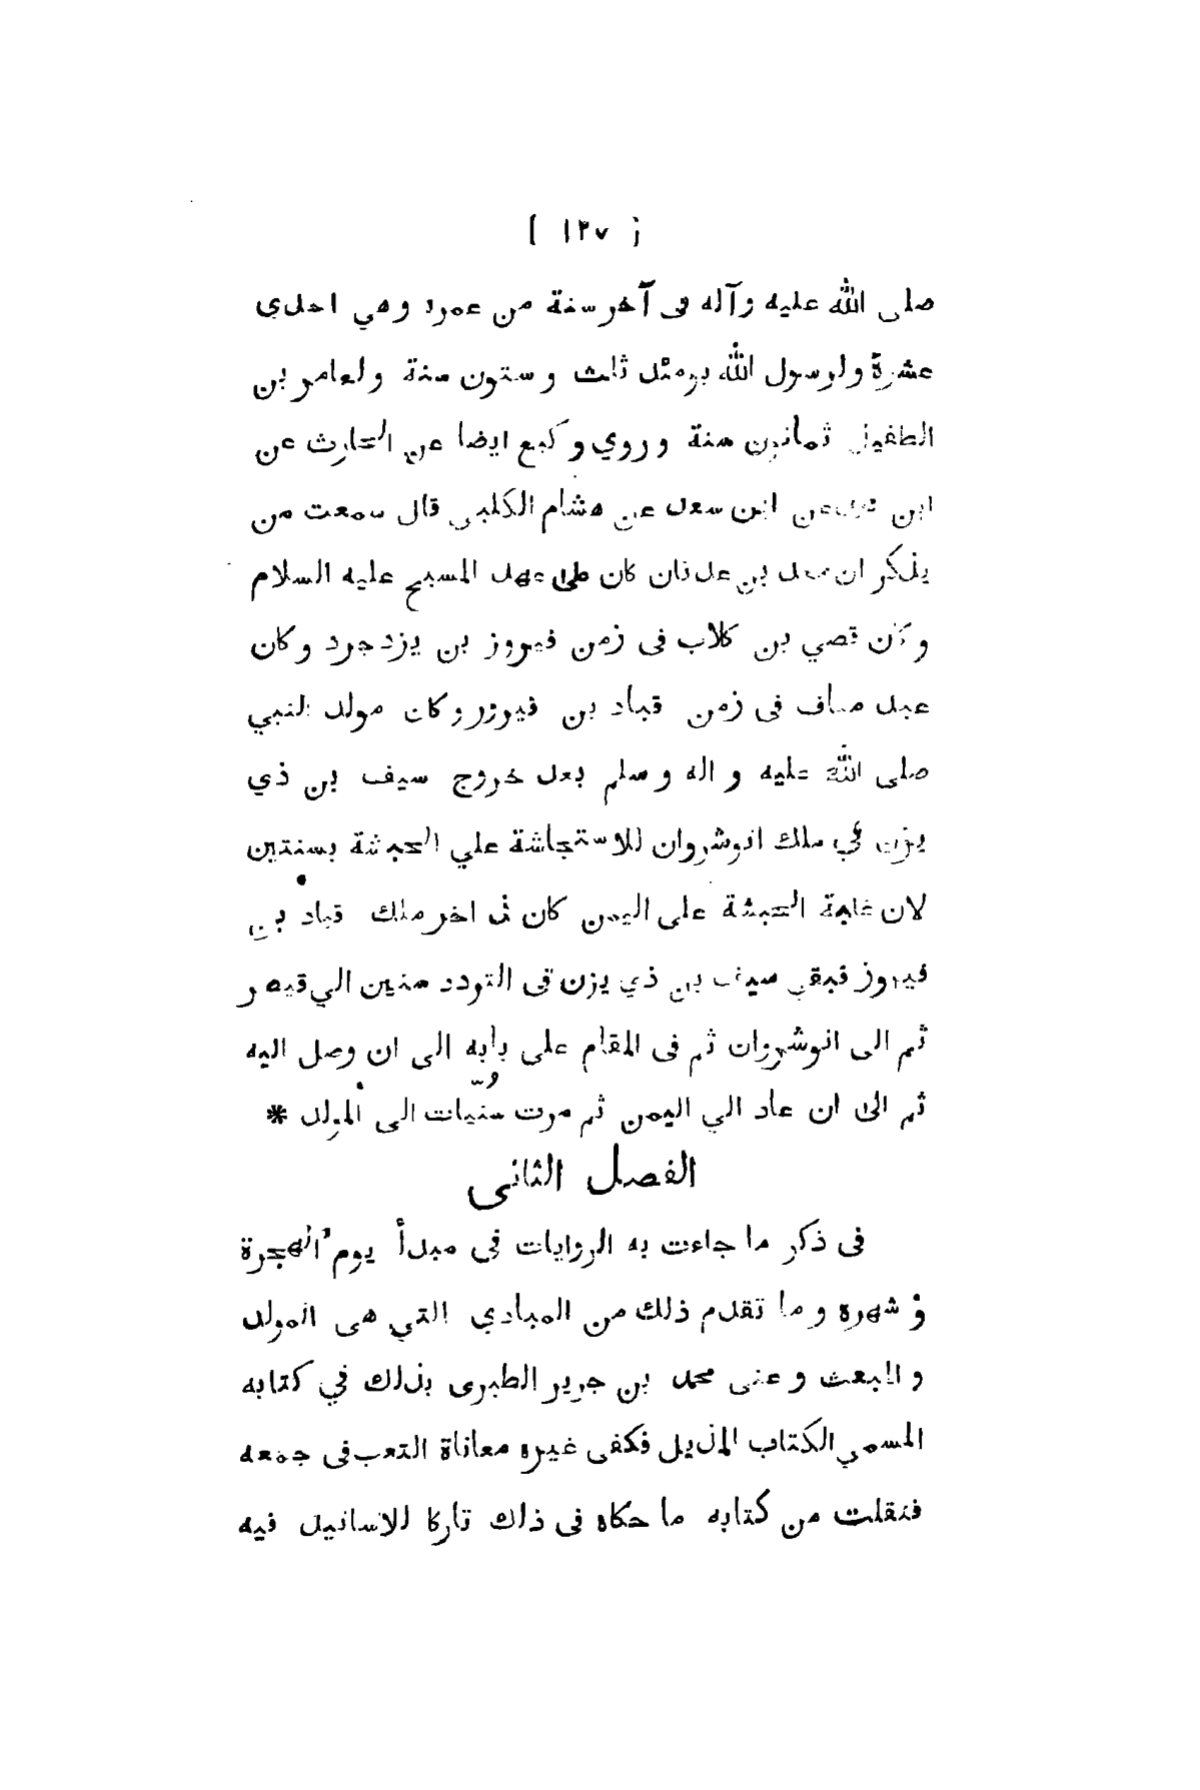 [ ١٢٧ ]
صلى الله عليه وآله فى آخر سنة من عمره وهي احدى
عشرة ولرسول الله يومئذ ثلث وستون سنة ولعامر بن
الطفيل ثمانون سنة وروي وكيع ايضا عن الحارث عن
ابن سعد عن هشام الكلبي قال سمعت من
يذكر ان معد بن عدنان كان على عهد المسيح عليه السلام
وكان قصي بن كلاب فى زمن فيروز بن يزدجرد وكان
عبد مناف فى زمن قباد بن فيروز وكان مولد النبي
صلى الله عليه واله وسلم بعد خروج سيف بن ذي
يزن في ملك انوشروان للاستجاشة علي الحبشة بسنتين
لان غلبة الحبشة على اليمن كان فى اخر ملك قباد بن
فيروز فبقى سيف بن ذي يزن فى التردد سنين الي قيصر
ثم الى انوشروان ثم فى المقام على بابه الى ان وصل اليه
ثم الى ان عاد الي اليمن ثم مرت سُنيّات الى المولد *
الفصل الثانى
فى ذكر ما جاءت به الروايات فى مبدأ يوم الهجرة
و شهره و ما تقدم ذلك من المبادي التي هى المولد
و البعث و عنى محمد بن جرير الطبرى بذلك في كتابه
المسمى الكتاب المذيل فكفى غيره معاناة التعب فى جمعه
فنقلت من كتابه ما حكاه فى ذلك تاركا للاسانيد فيه